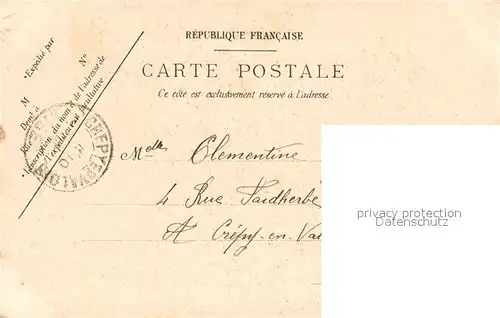 RÉPUBLIQUE FRANÇAISE
CARTE POSTALE
Ce côté est exclusivement réservé à l'adresse
Expédié par
M
Dem<sup>t</sup> à
Rue
N°
L'inscription du nom et de l'adresse de
l'expéditeur est facultative
CREPY-EN-VALOIS
Melle Clementine
4 Rue Faidherbe
A Crépy-en-Va
privacy protection
Datenschutz